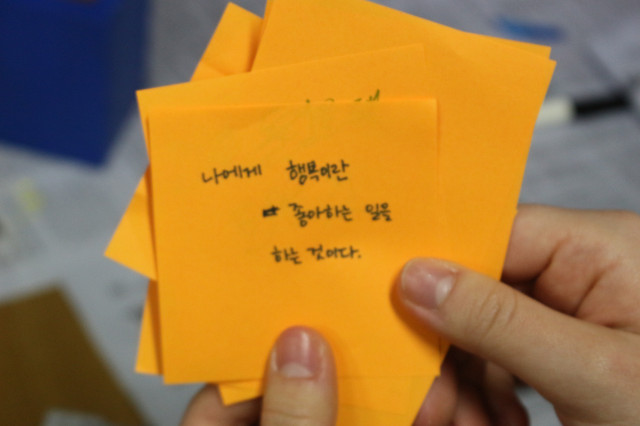 나에게 행복이란
좋아하는 일을
하는 것이다.